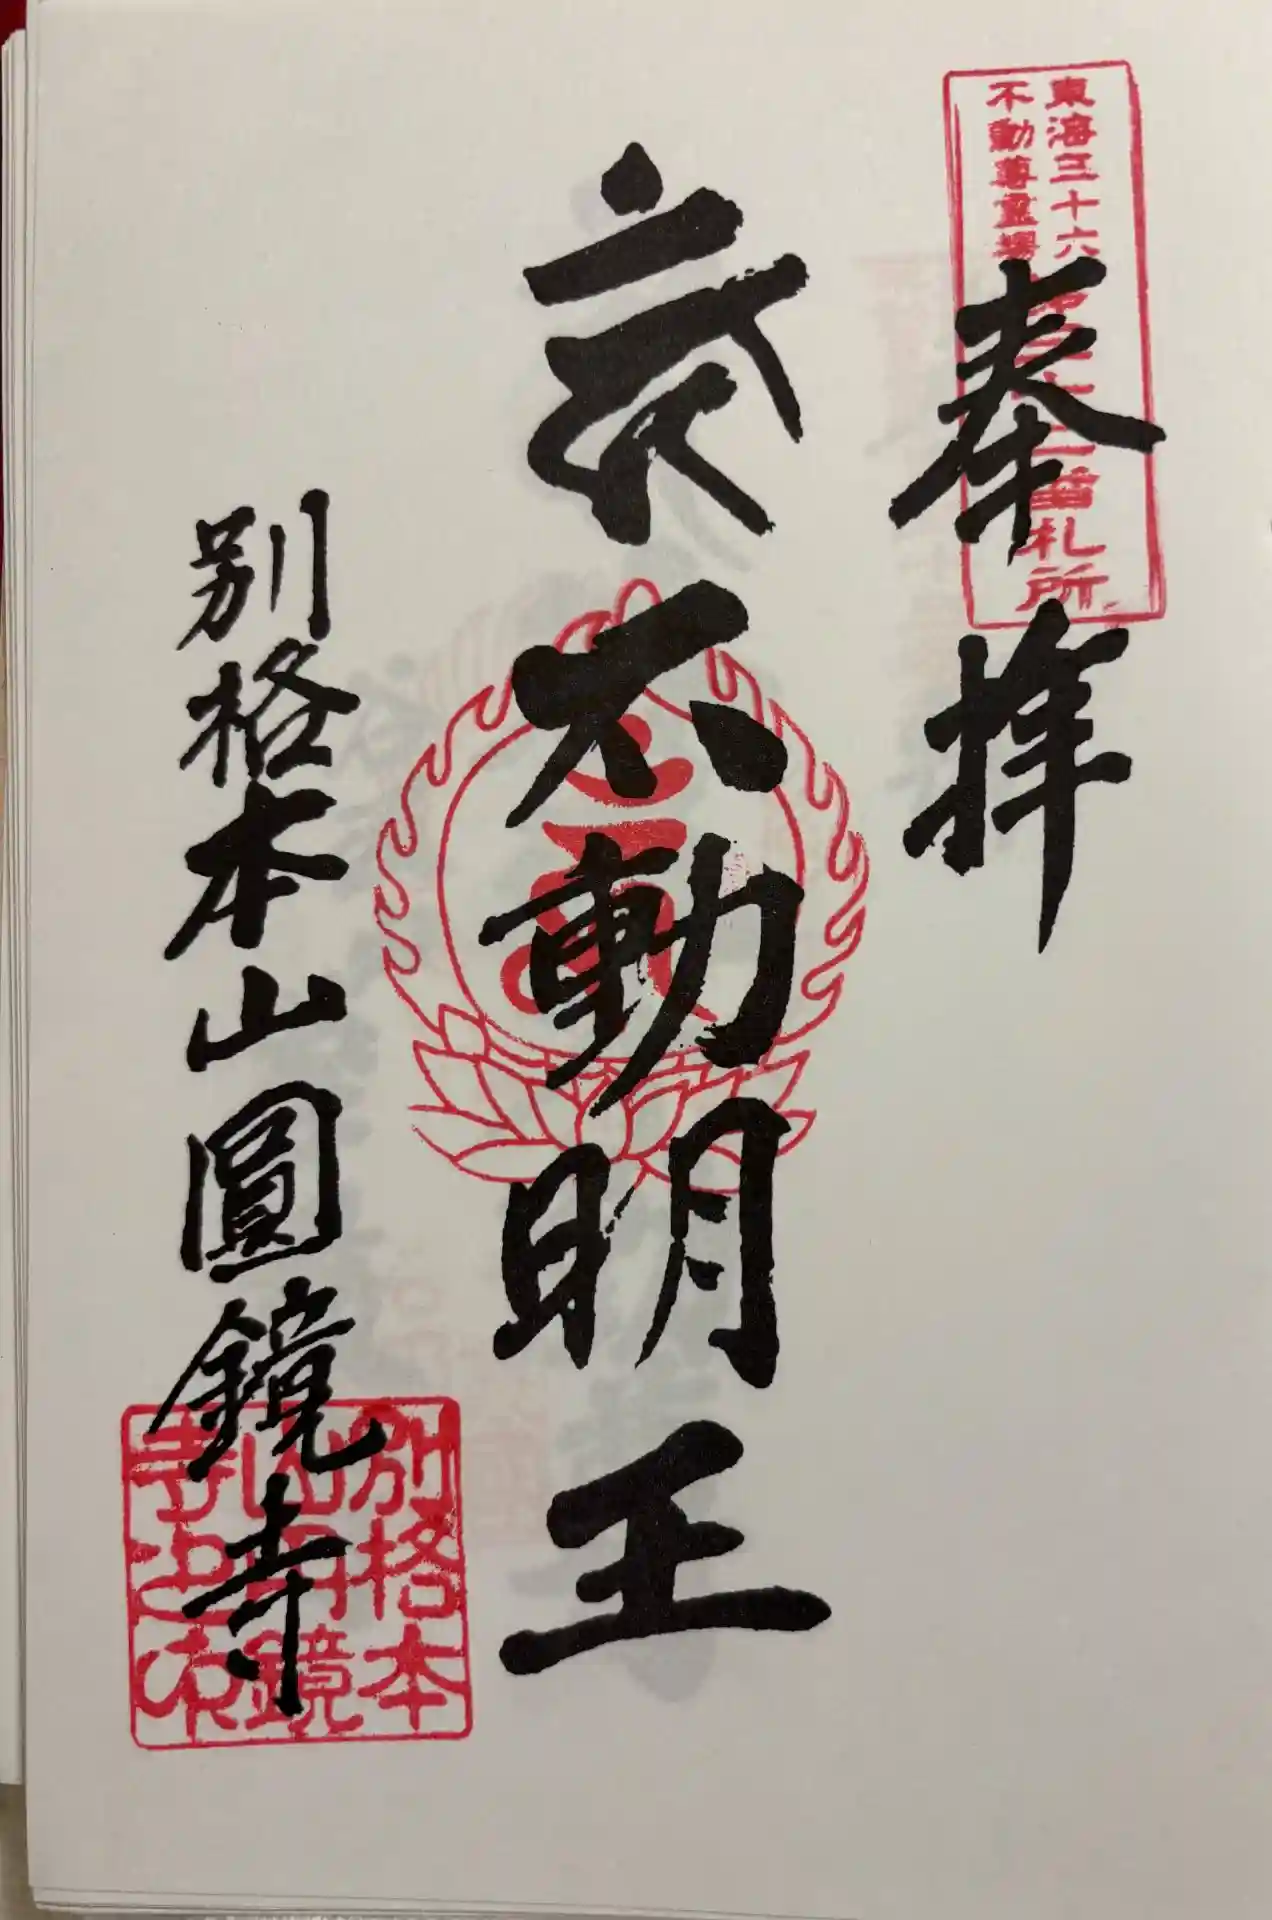 東海三十六
不動尊霊場
番札所
奉拝
不動明王
別格本山圓鏡寺
別格本
山円鏡
寺之印